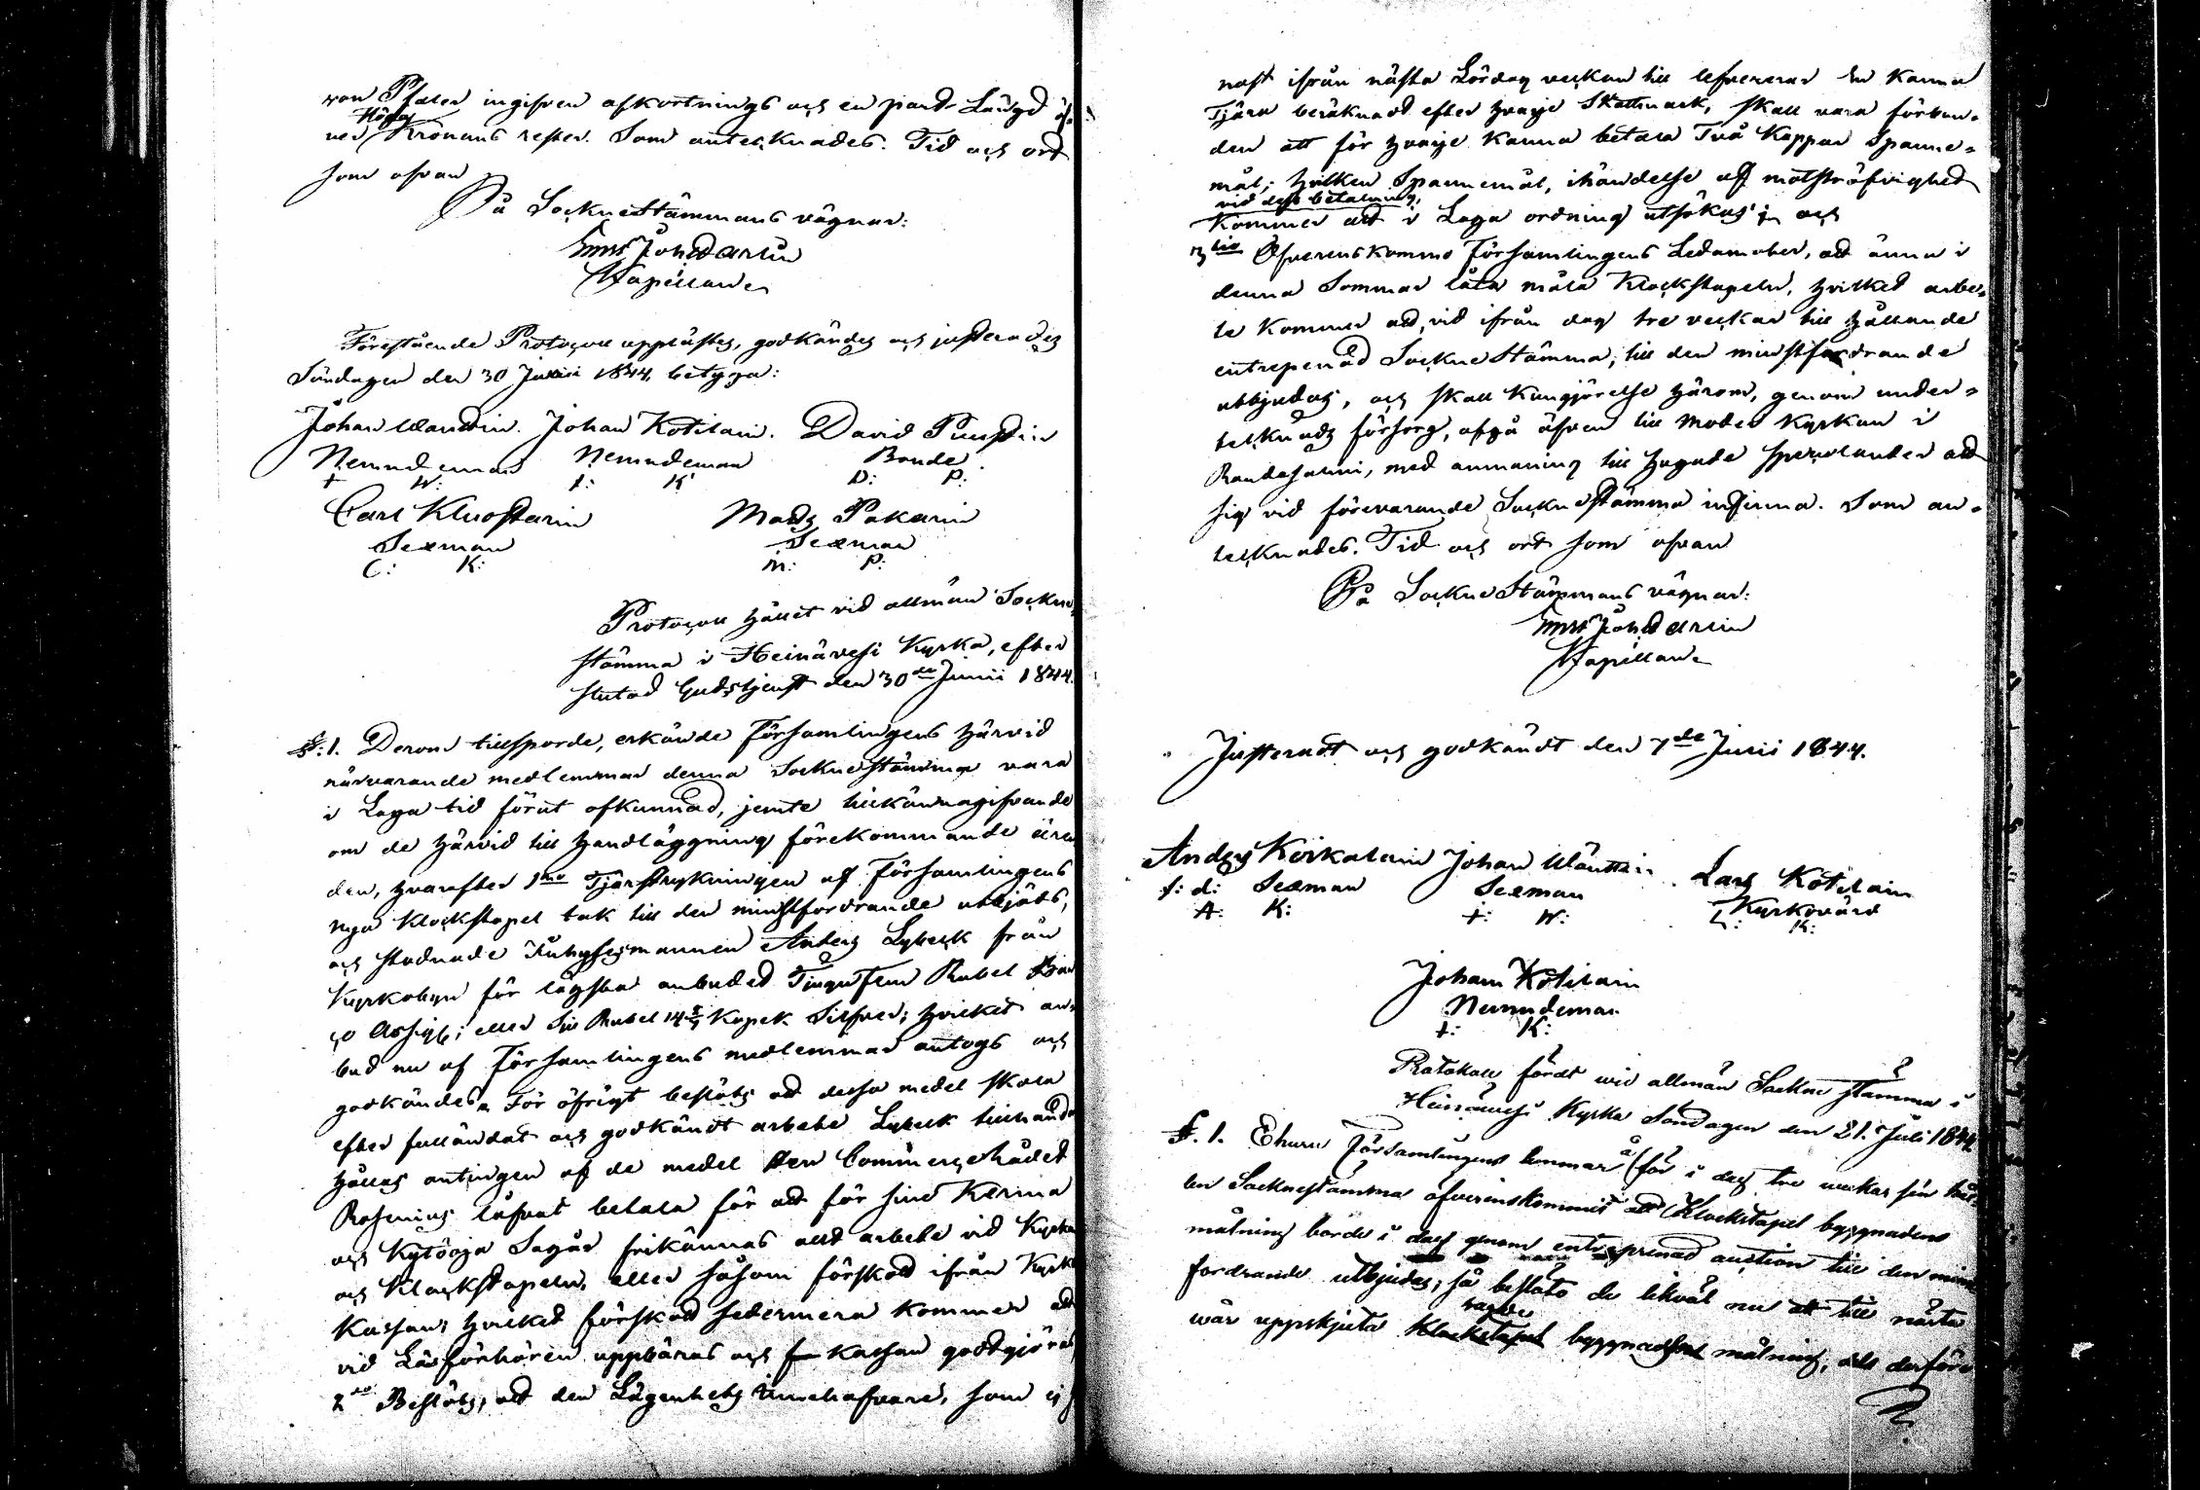 von Pfaler ingifven afkortnings och en pard. Längd öf-
ver Höga Kronans rester. Som antecknades. Tid och ort
som ofvan
På SockneStämmans vägnar:
Joh. Darlin
Kapellan
Förestående Protocoll upplästes, godkändes och justerades
Söndagen den 30 Junii 1844, betyga:
Johan Wanttin. Johan Kotilain. David Puustin
Nemndeman Nemndeman Bonde.
I: W: I: K: D: P:
Carl Kluostarin Mats Pakarin
Sexman Sexman
C: K: M: P:
Protocoll hållet vid allmän Sockne-
stämma i Heinävesi Kyrka, efter
slutad Gudstjenst den 30de Junii 1844.
§: 1. Derom tillsporde, erkände Församlingens härvid
närvarande medlemmar denna Socknestämma vara
i Laga tid förut afkunnad, jemte tillkännagifvande
om de härvid till handläggning förekommande ären-
den, hvarefter 1mo Tjärstrykningen af Församlingens
nya Klockstapel tak till den minstfordrande utbjöds,
och stadnade Inhysesmannen Anders Lybeck från
Kyrkobyn för lägsta anbudet Tjugufem Rubel
50 Assign; eller Sju Rubel 14 2/7 Kopek Silfver; hvilket an-
bud nu af Församlingens medlemmar antogs och
godkändes. För öfrigt beslöts att dessa medel skola
efter fulländat och godkändt arbete Lybeck tillhanda
hållas antingen af de medel Herr CommerceRådet
Rosenius lofvat betala för att för sine Kerma
och Kytöoja Sågar frikännas all arbete vid Kyrka
och Klockstapeln, eller såsom förskott ifrån Kyrko
Kassan; hvilket förskott sedermera kommer att
vid Läsförhören uppbäras och Kassan godtgöras
2do Beslöts, att den Lägenhets Innehafvare, som ej
nast ifrån nästa Lördag veckan till lefvererar En Kanna
Tjära beräknadt efter hvarje Skattmark, skall vara förbun-
den att för hvarje Kanna betala Två Kappar Spanne-
mål; hvilken Spannemål, ihändelse af motsträfvighet
vid dess betalning,
kommer att i Laga ordning utsökas; och
3tio Öfverenskommo Församlingens Ledamöter, att ännu i
denna Sommar låta måla Klockstapeln, hvilket arbe-
te kommer att, vid ifrån dag tre veckar till hållande
entreprenad SockneStämma, till den minstfordrande
utbjudas, och skall Kungjörelse härom, genom under-
tecknads försorg, afgå äfven till Moder Kyrkan i
Randasalmi, med anmaning till hugade spekulanter att
sig vid förevarande Socknestämma infinna. Som an-
tecknades. Tid och ort som ofvan
På SockneStämmans vägnar:
Joh. Darlin
Kapellan
Justeradt och godkändt den 7de Junii 1844.
Anders Kirkolain Johan Wänttin. Lars Kotilain
f: d: Sexman Sexman Kyrkovärd
A: K: I: W: L: K:
Johan Kotilain
Nemndeman
I: K:
Protokoll fördt wid allmän Sockne stämma i
Heinävesi Kyrka Söndagen den 21. Juli 1844
§. 1. Ehuru Församlingens lemmar å för i dag tre weckar sen hål-
len Socknestämma öfverenskommit att Klockstapel byggnadens
målning borde i dag genom entreprenad auction till den minst
fordrande utbjudas; så beslöto de likväl nu att till nästa
wår uppskjuta sagde byggnads målning, dels derföre